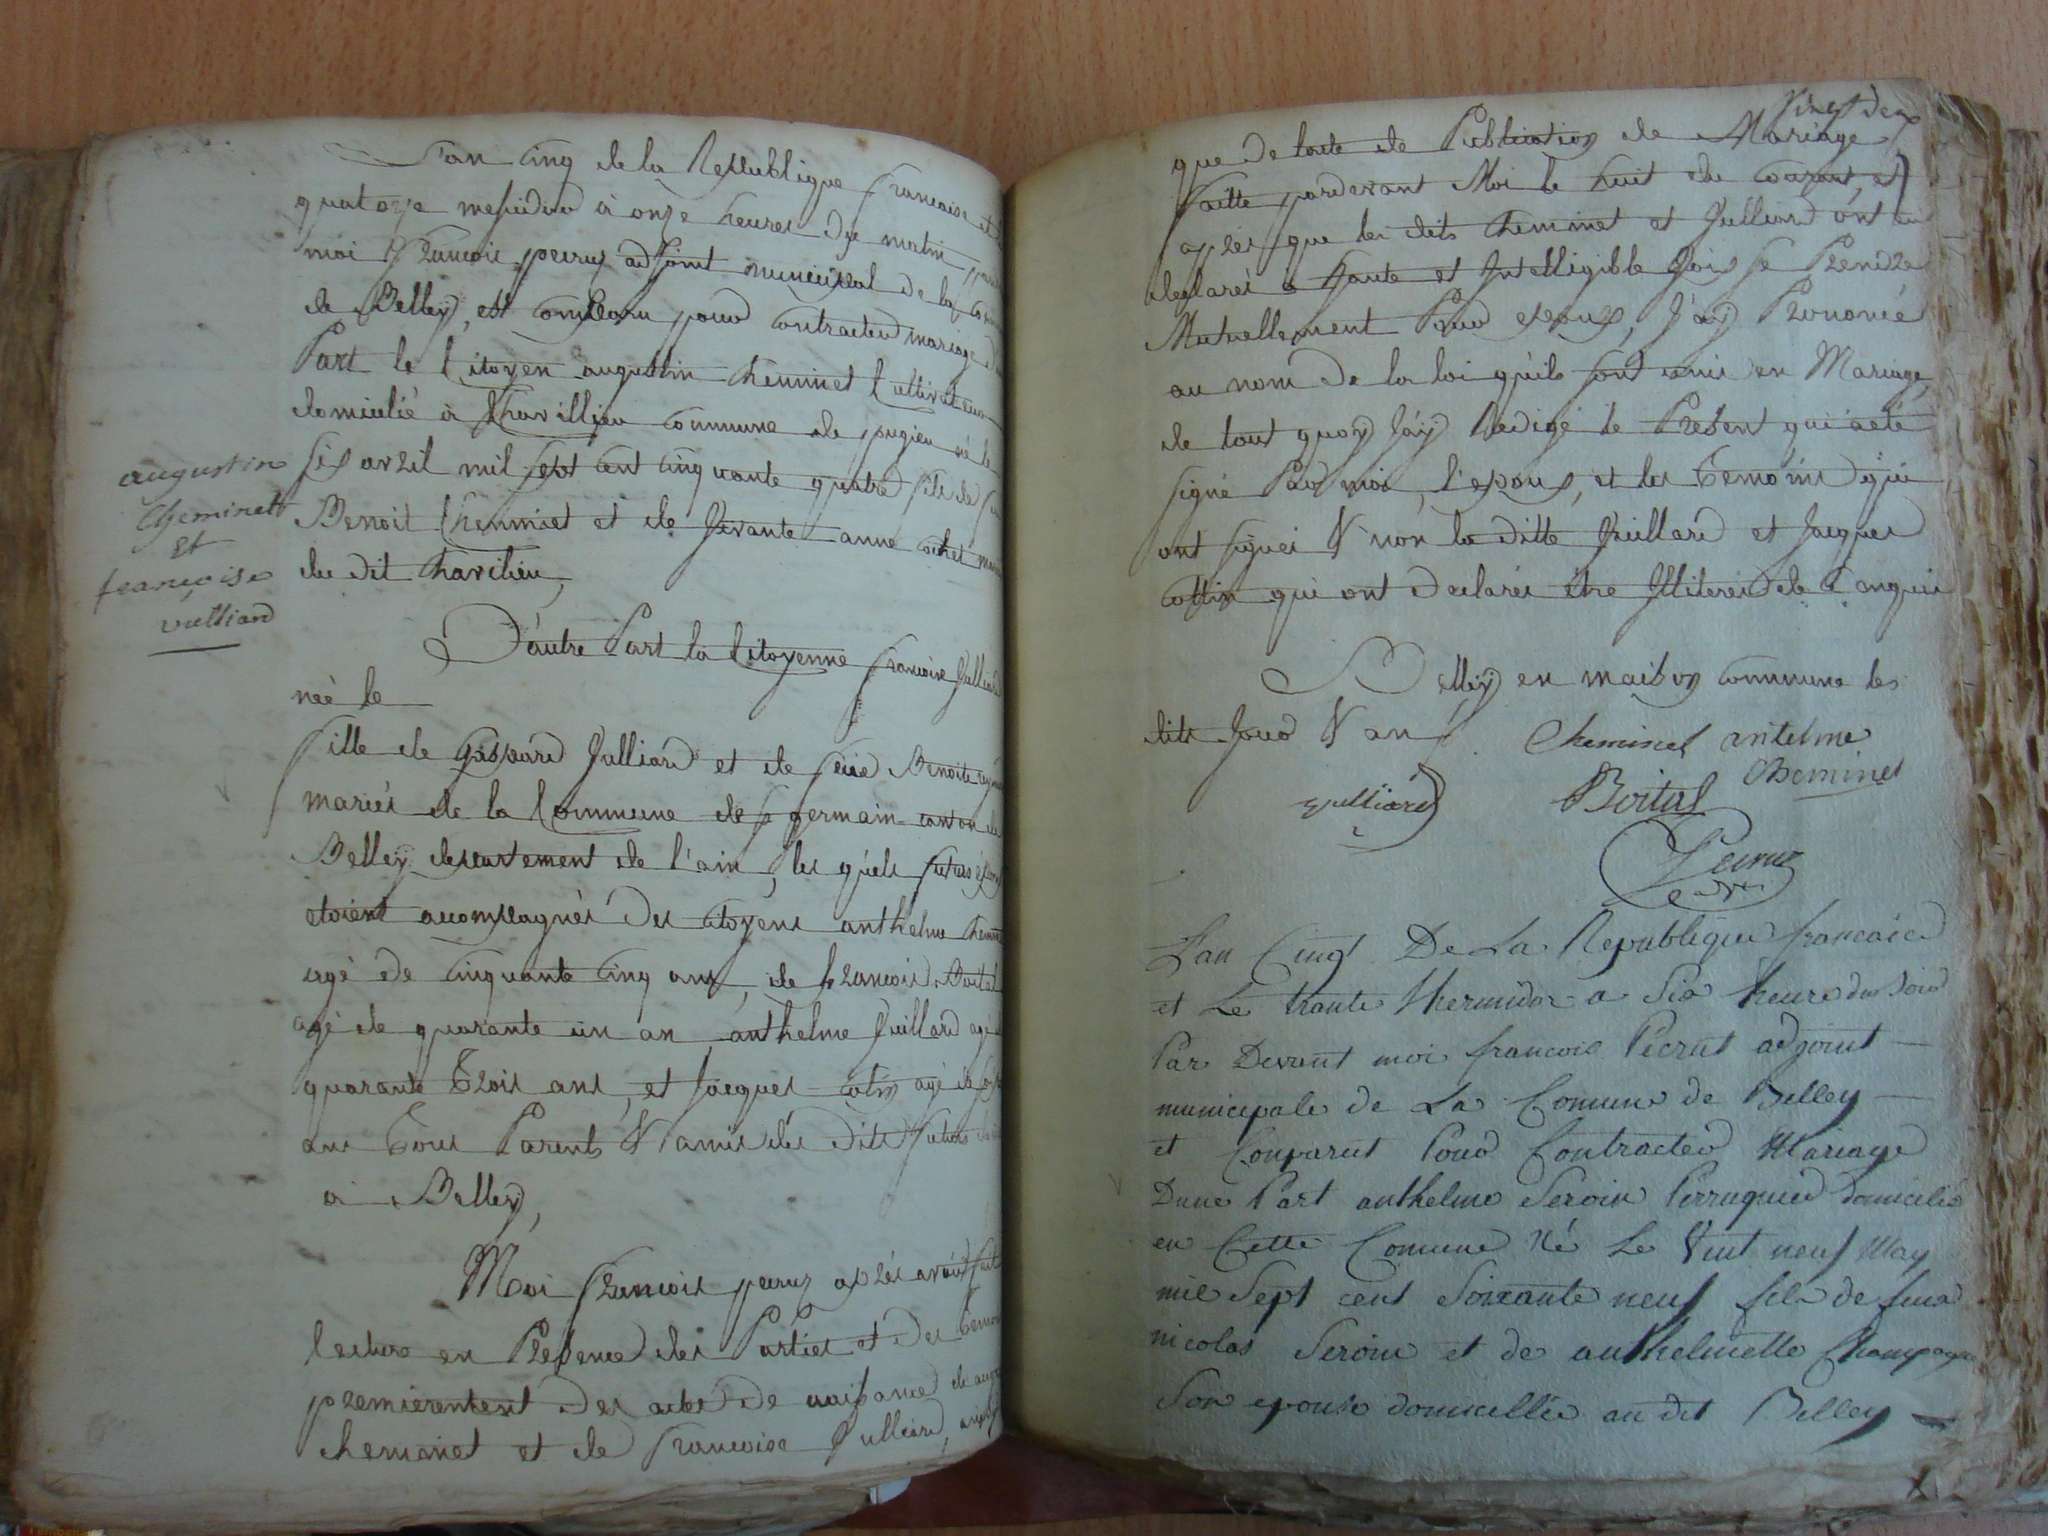 L'an cinq de la Republique francaise et le
quatorze messidor à onze heures du matin
moi francois peyruz adjoint municipal de la
de Belley, est comparu pour contracter mariage
Part le Citoyen augustin cheminet Cultivateur
domicilié à Chavillieu commune de pugieu né le
six avril mil sept cent cinquante quatre fils de feu
Benoit Cheminet et de vivante anne cochet
du dit Chavilieu,
augustin
Cheminet
et
françoise
vulliard
D'autre Part la Citoyenne francoise Julliard
née le
fille de Gaspard Julliard et de feue Benoite
mariés de la Commune de st germain canton de
Belley departement de l'ain, les quels futurs époux
etoient accompagnés des citoyens anthelme
agé de cinquante cinq ans, de francois Boital
agé de quarante un an, anthelme Juillard agé
quarante Trois ans, et Jacques cotin agé de
ans Tous Parents & amis des dits futurs
a Belley,
Moi francois peyruz après avoir fait
lecture en Presence des Parties et des temoins
premierement des actes de naissance de
cheminet et de francoise Julliard,
vingt deux
que de toute de Publication de Mariage
faitte pardevant Moi le huit du courant, et
après que les dits cheminet et Julliard ont
declarés à haute et Intelligible Voix se Prendre
Mutuellement Pour epoux, J'ay Prononcé
au nom de la loi qu'ils sont unis en Mariage,
de tout quoy J'ay Redigé le Présent qui a eté
signé Par moi, l'epoux, et les Temoins qui
ont signés & non la ditte Juillard et Jacques
cottin qui ont declarés être Illiterés de ce enquis
Belley en maison commune les
dits Jour & an
Cheminet antelme
Cheminet
vulliard Boital
Peyruz
L'an Cinqt De La Republique francaice
et Le trante thermidor a Six heure du Soir
Par Devant moi francois Peirut adjoint
municipale de La Comune de Belley
et Comparut Pour Contracter Mariage
Dune Part anthelme Seroin Perruquier domicilié
en Cette Comune Né Le Vint neuf May
mil Sept cent Soixante neuf fils de feux
nicolas Seroin et de anthelmette Champagne
Son epouse domicilliée au dit Belley